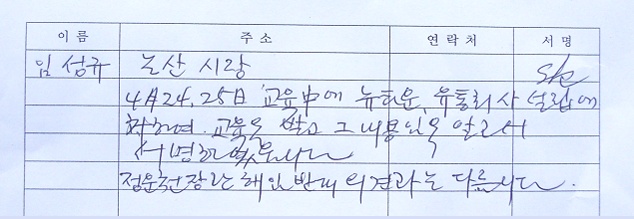 이름 주소 연락처 서명
임성규 논산시랑
4月24,25日 교육中에 뉴타운, 유통회사 설립에
하여 교육을 받고 그 내용인 알고서
서명하였읍니다
정운천장관 해임반대 의견과는 다릅니다.